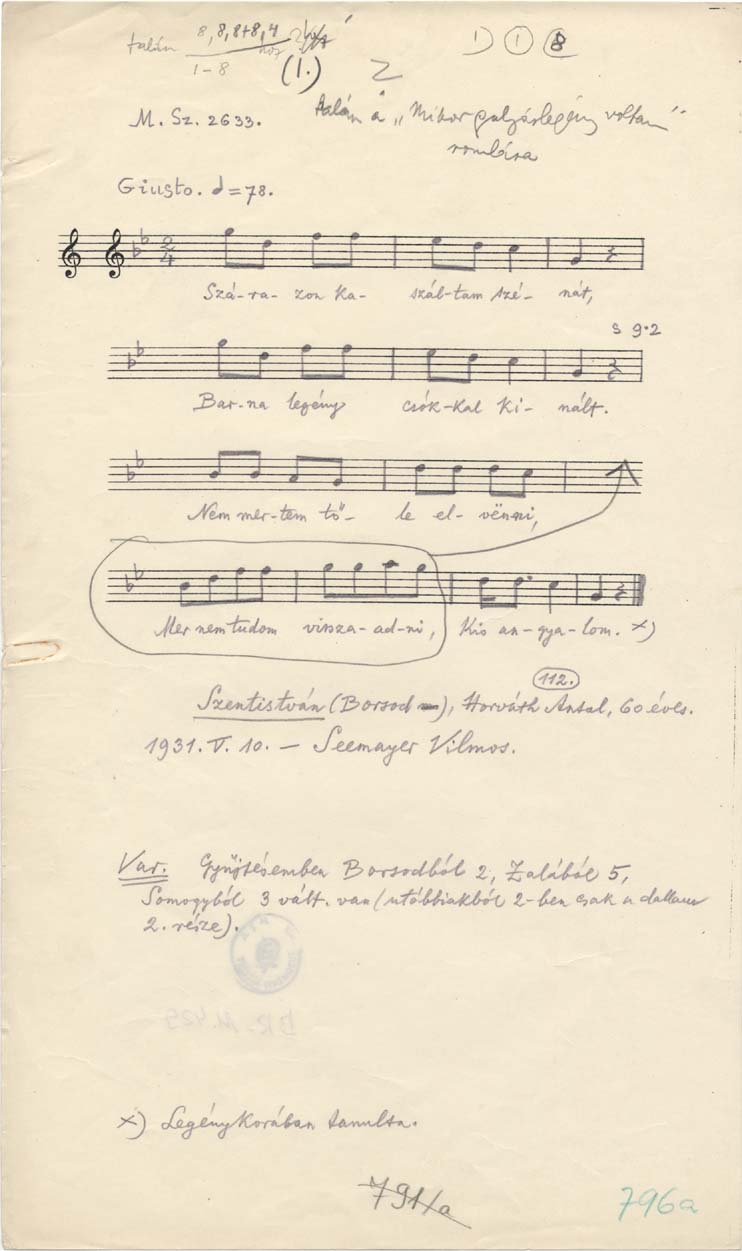 talán 8, 8, 8+8, 4
1-8
(1.) Z
1 1 8
M. Sz. 2633.
talán a „Mikor gulyáslegény voltam”
rombára
Giusto. d=78.
2
4
Szá-ra-zon ka-szál-tam szé-nát,
s 9·2
Bar-na legény csók-kal ki-nált.
Nem mer-tem tő-le el-vënni,
Mer nem tudom vissza-ad-ni, Kis an-gya-lom. x)
112.
Szentistván (Borsod), Horváth Antal, 60 éves.
1931. V. 10. — Seemayer Vilmos.
Var. Gyűjtésemben Borsodból 2, Zalából 5,
Somogyból 3 vált. van (utóbbiakból 2-ben csak a dallam
2. része).
BR. M. 425
x) Legénykorában tanulta.
791/a
796a